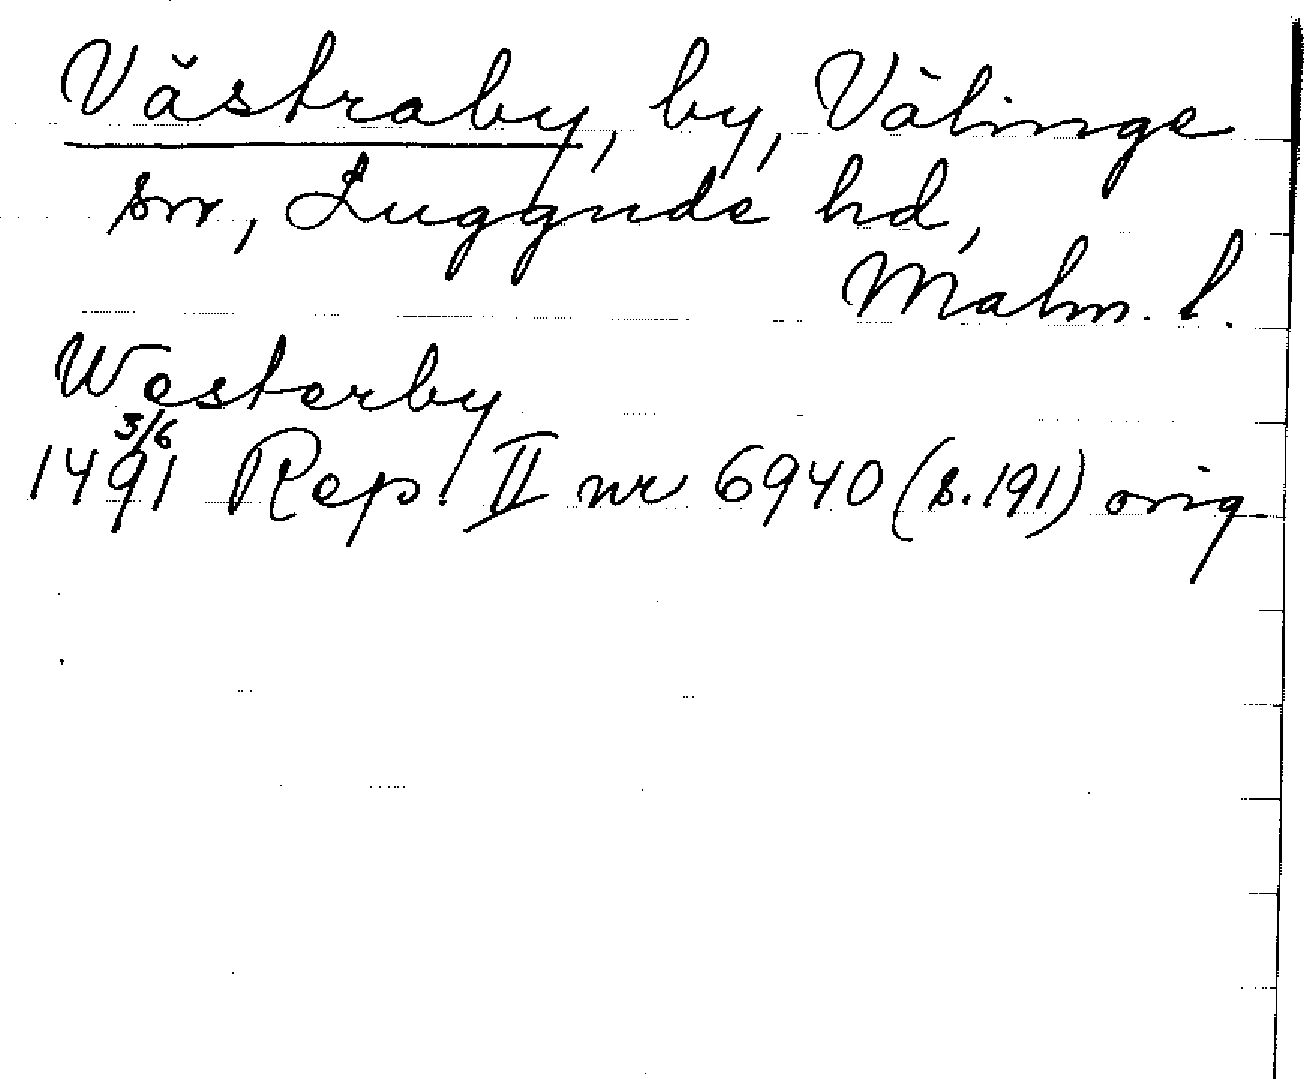 Västraby, by, Välinge
sn, Luggude hd,
Malm. l.
Westerby
3/6
1491 Rep. II nr 6940 (s. 191) orig.